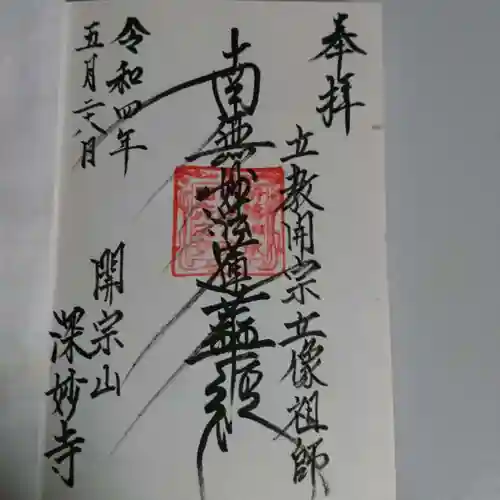 奉拝
立教開宗立像祖師
南無妙法蓮華経
令和四年
五月二十八日
開宗山
深妙寺